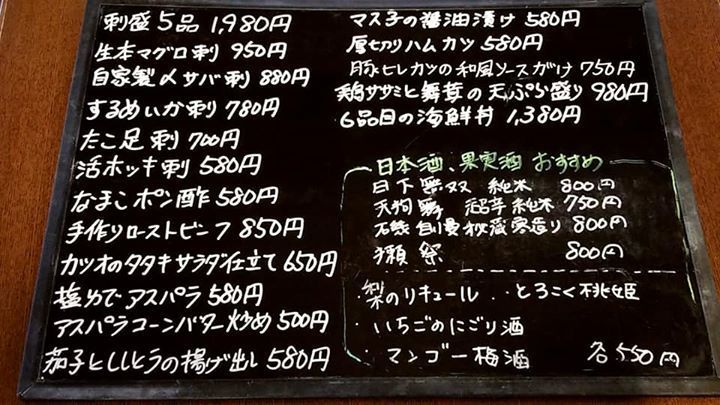 刺盛5品 1,980円
生本マグロ刺 950円
自家製〆サバ刺 880円
するめいか刺 780円
たこ足刺 700円
活ホッキ刺 580円
なまこポン酢 580円
手作りローストビーフ 850円
カツオのタタキサラダ仕立て 650円
塩ゆでアスパラ 580円
アスパラコーンバター炒め 500円
茄子とししとうの揚げ出し 580円
マス子の醤油漬け 580円
厚切りハムカツ 580円
豚ヒレカツの和風ソースがけ 750円
鶏ササミと舞茸の天ぷら盛り 980円
6品目の海鮮丼 1,380円
日本酒、果実酒 おすすめ
日下無双 純米 800円
天狗舞 超辛純米 750円
石鎚 自慢 秘蔵寒造り 800円
獺祭 800円
・梨のリキュール ・とろこく桃姫
・いちごのにごり酒
・マンゴー梅酒 各550円